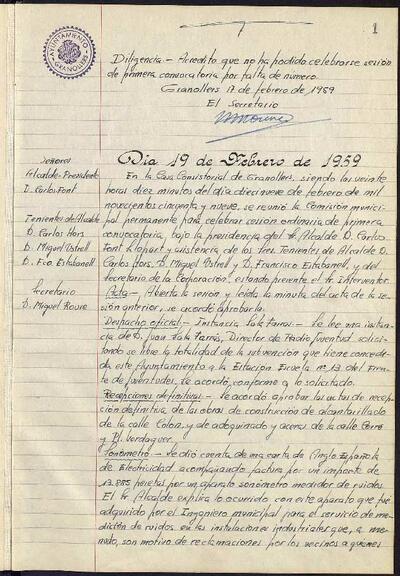 1
AYUNTAMIENTO
GRANOLLERS
Diligencia.- Acredito que no ha podido celebrarse sesión
de primera convocatoria por falta de número.
Granollers 17 de febrero de 1959
El Secretario
Día 19 de Febrero de 1959
Señores
Alcalde-Presidente
D. Carlos Font
Tenientes de Alcalde
D. Carlos Hors
D. Miguel Ustrell
D. Fco. Estabanell
Secretario
D. Miguel Roure
En la Casa Consistorial de Granollers, siendo las veinte
horas diez minutos del día diecinueve de febrero de mil
novecientos cincuenta y nueve, se reunió la Comisión munici-
pal permanente para celebrar sesión ordinaria de primera
convocatoria, bajo la presidencia del Sr. Alcalde D. Carlos
Font Llopart y asistencia de los Tres Tenientes de Alcalde D.
Carlos Hors, D. Miguel Ustrell y D. Francisco Estabanell, y del
Secretario de la Corporación, estando presente el Sr. Interventor.
Acta.- Abierta la sesión y leída la minuta del acta de la se-
sión anterior, se acordó aprobarla.
Despacho oficial.- Instancia Sala Parras.- Se lee una instan-
cia de D. Juan Sala Parras, Director de Radio Juventud, solicitan-
do se libre la totalidad de la subvención que tiene concedi-
da este Ayuntamiento a la Estación Escuela nº 13 del Fren-
te de Juventudes, se acordó conforme a lo solicitado.
Recepciones definitivas.- Se acordó aprobar las actas de recep-
ción definitiva de las obras de construcción de alcantarillado
de la calle Colón, y de adoquinado y aceras de la calle
y Pl. Verdaguer.
Sonómetro.- Se dió cuenta de una carta de Anglo Española
de Electricidad acompañando factura por un importe de
13.885 pesetas por un aparato sonómetro medidor de ruidos.
El Sr. Alcalde explica lo ocurrido con este aparato que fué
adquirido por el Ingeniero municipal para el servicio de me-
dición de ruidos en las instalaciones industriales que, a me-
nudo, son motivo de reclamaciones por los vecinos a quienes